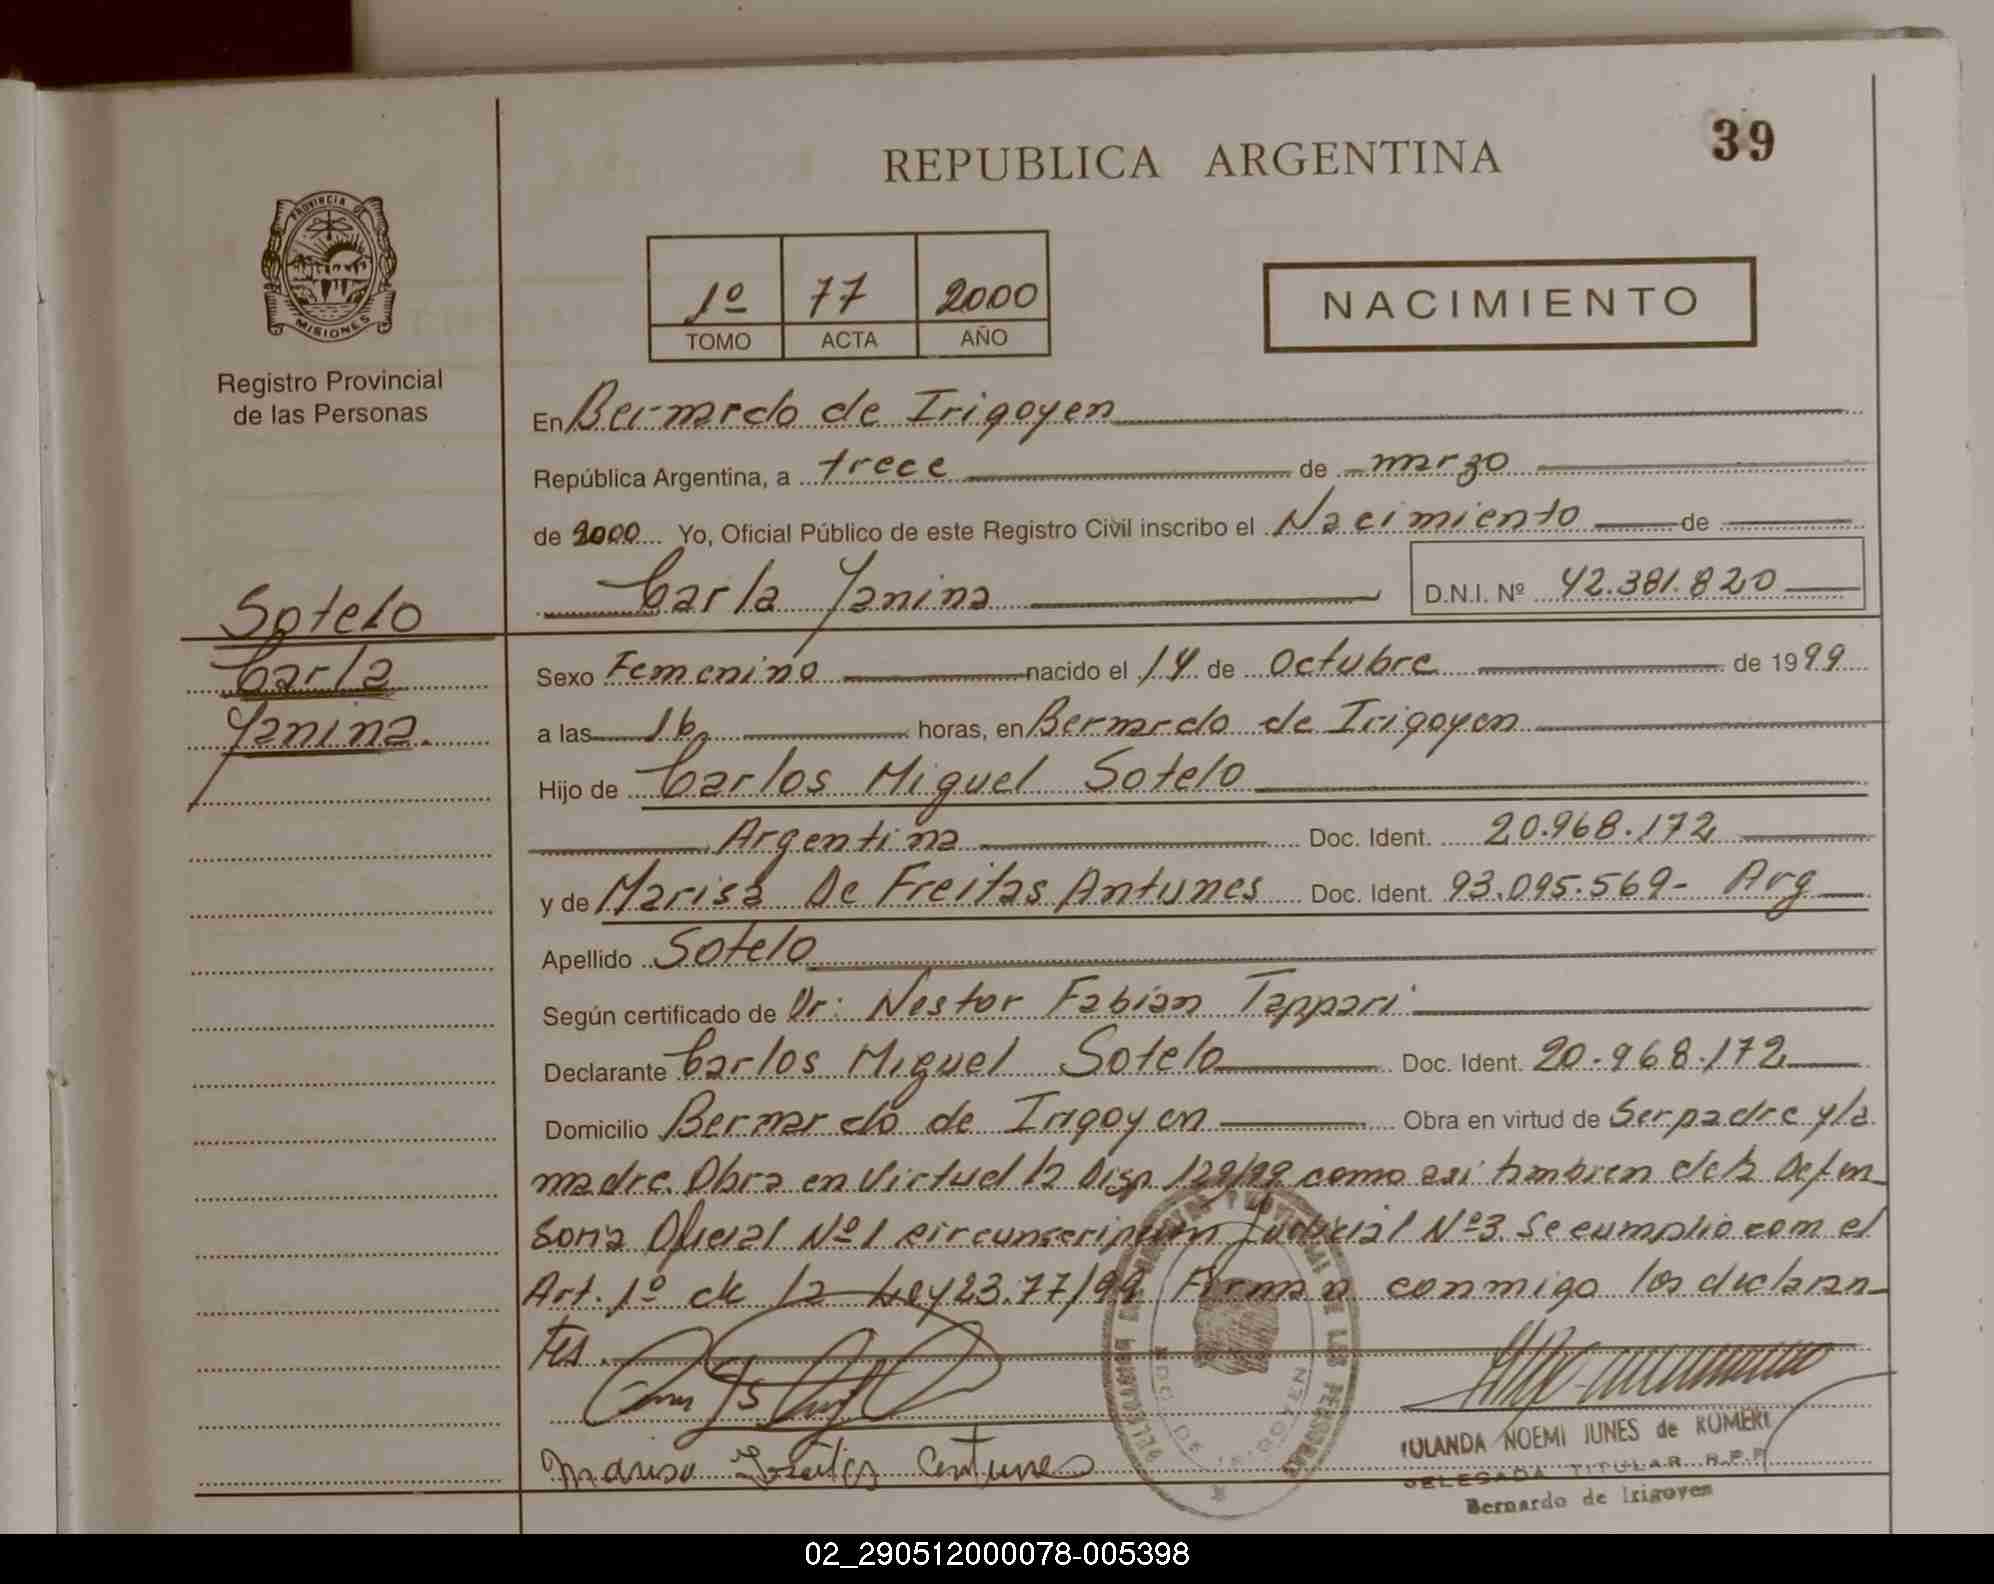 39
REPUBLICA ARGENTINA
PROVINCIA DE
MISIONES
Registro Provincial
de las Personas
1º 77 2000
TOMO ACTA AÑO
NACIMIENTO
En Bernardo de Irigoyen
República Argentina, a trece de marzo
de 2000 Yo, Oficial Público de este Registro Civil inscribo el Nacimiento de
Carla Yanina D.N.I. Nº 42.381.820
Sotelo
Carla
Yanina.
Sexo Femenino nacido el 14 de Octubre de 1999
a las 16 horas, en Bernardo de Irigoyen
Hijo de Carlos Miguel Sotelo
Argentina Doc. Ident. 20.968.172
y de Marisa De Freitas Antunes Doc. Ident. 93.095.569- Arg
Apellido Sotelo
Según certificado de Dr: Nestor Fabian Tappari
Declarante Carlos Miguel Sotelo Doc. Ident. 20.968.172
Domicilio Bernardo de Irigoyen Obra en virtud de Ser padre y la
madre. Obra en Virtud la Disp 129/99 como asi tambien de la Defen
soria Oficial Nº 1 circunscripcion Judicial Nº 3. Se cumplio con el
Art. 1º de la Ley 23.77/99 Firman conmigo los declaran-
tes.
Marisa Freitas Antunes
IULANDA NOEMI JUNES de ROMERO
DELEGADA TITULAR R.P.P
Bernardo de Irigoyen
02_290512000078-005398